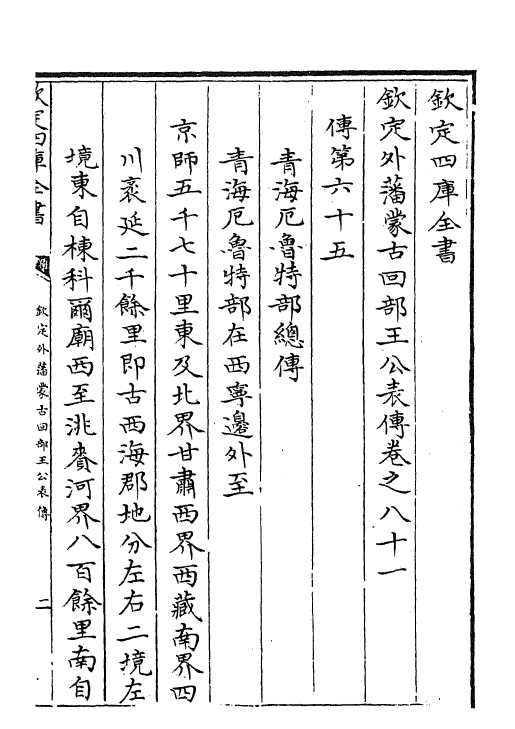 欽定四庫全書
欽定外藩蒙古回部王公表傳卷之八十一
傳第六十五
青海厄魯特部總傳
青海厄魯特部在西寧邊外至
京師五千七十里東及北界甘肅西界西藏南界四
川袤延二千餘里即古西海郡地分左右二境左
境東自棟科爾廟西至洮賚河界八百餘里南自
欽定四庫全書
欽定外藩蒙古回部王公表傳
二